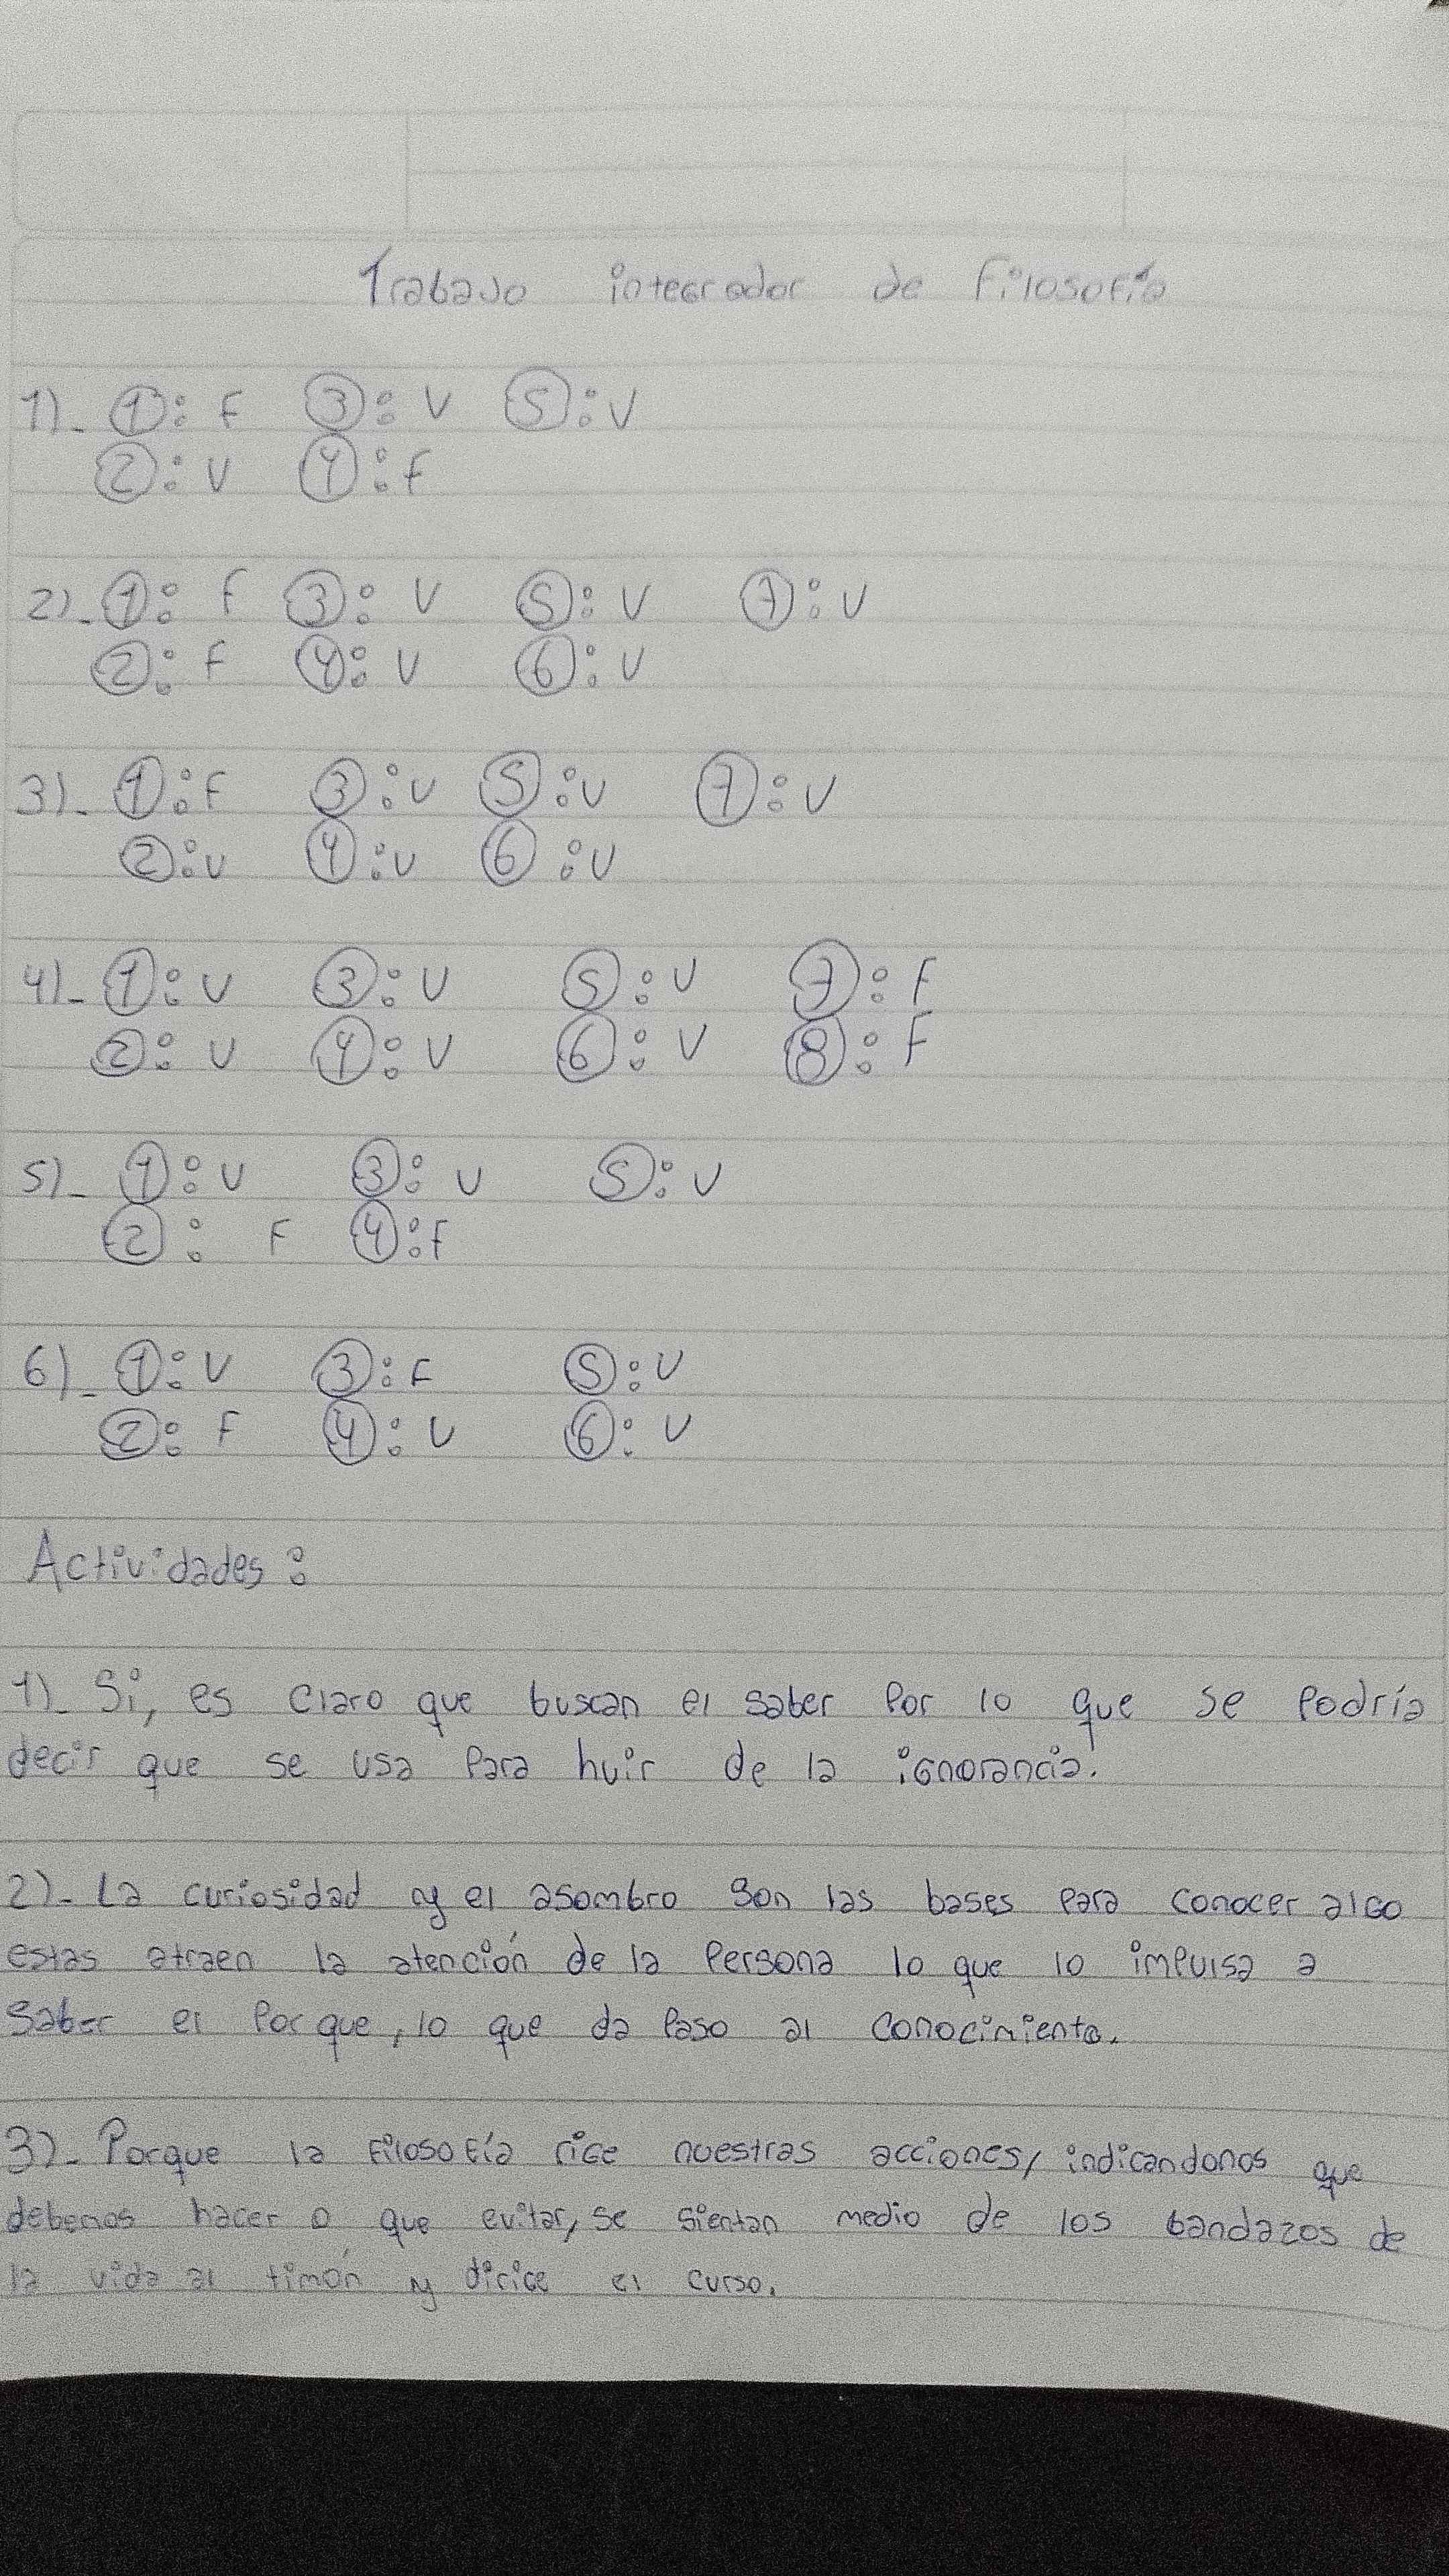 Trabajo integrador de Filosofía
1)- ①: F ③: V ⑤: V
②: V ④: F
2)- ①: F ③: V ⑤: V ⑦: V
②: F ④: V ⑥: V
3)- ①: F ③: V ⑤: V ⑦: V
②: V ④: V ⑥: V
4)- ①: V ③: V ⑤: V ⑦: F
②: V ④: V ⑥: V ⑧: F
5)- ①: V ③: V ⑤: V
②: F ④: F
6)- ①: V ③: F ⑤: V
②: F ④: V ⑥: V
Actividades:
1)- Si, es claro que buscan el saber por lo que se podría
decir que se usa para huir de la ignorancia.
2)- La curiosidad y el asombro son las bases para conocer algo
estas atraen la atención de la persona lo que lo impulsa a
saber el por que, lo que da paso al conocimiento.
3)- Porque la filosofía rige nuestras acciones, indicandonos que
debemos hacer o que evitar, se sientan medio de los bandazos de
la vida al timón y dirige el curso.